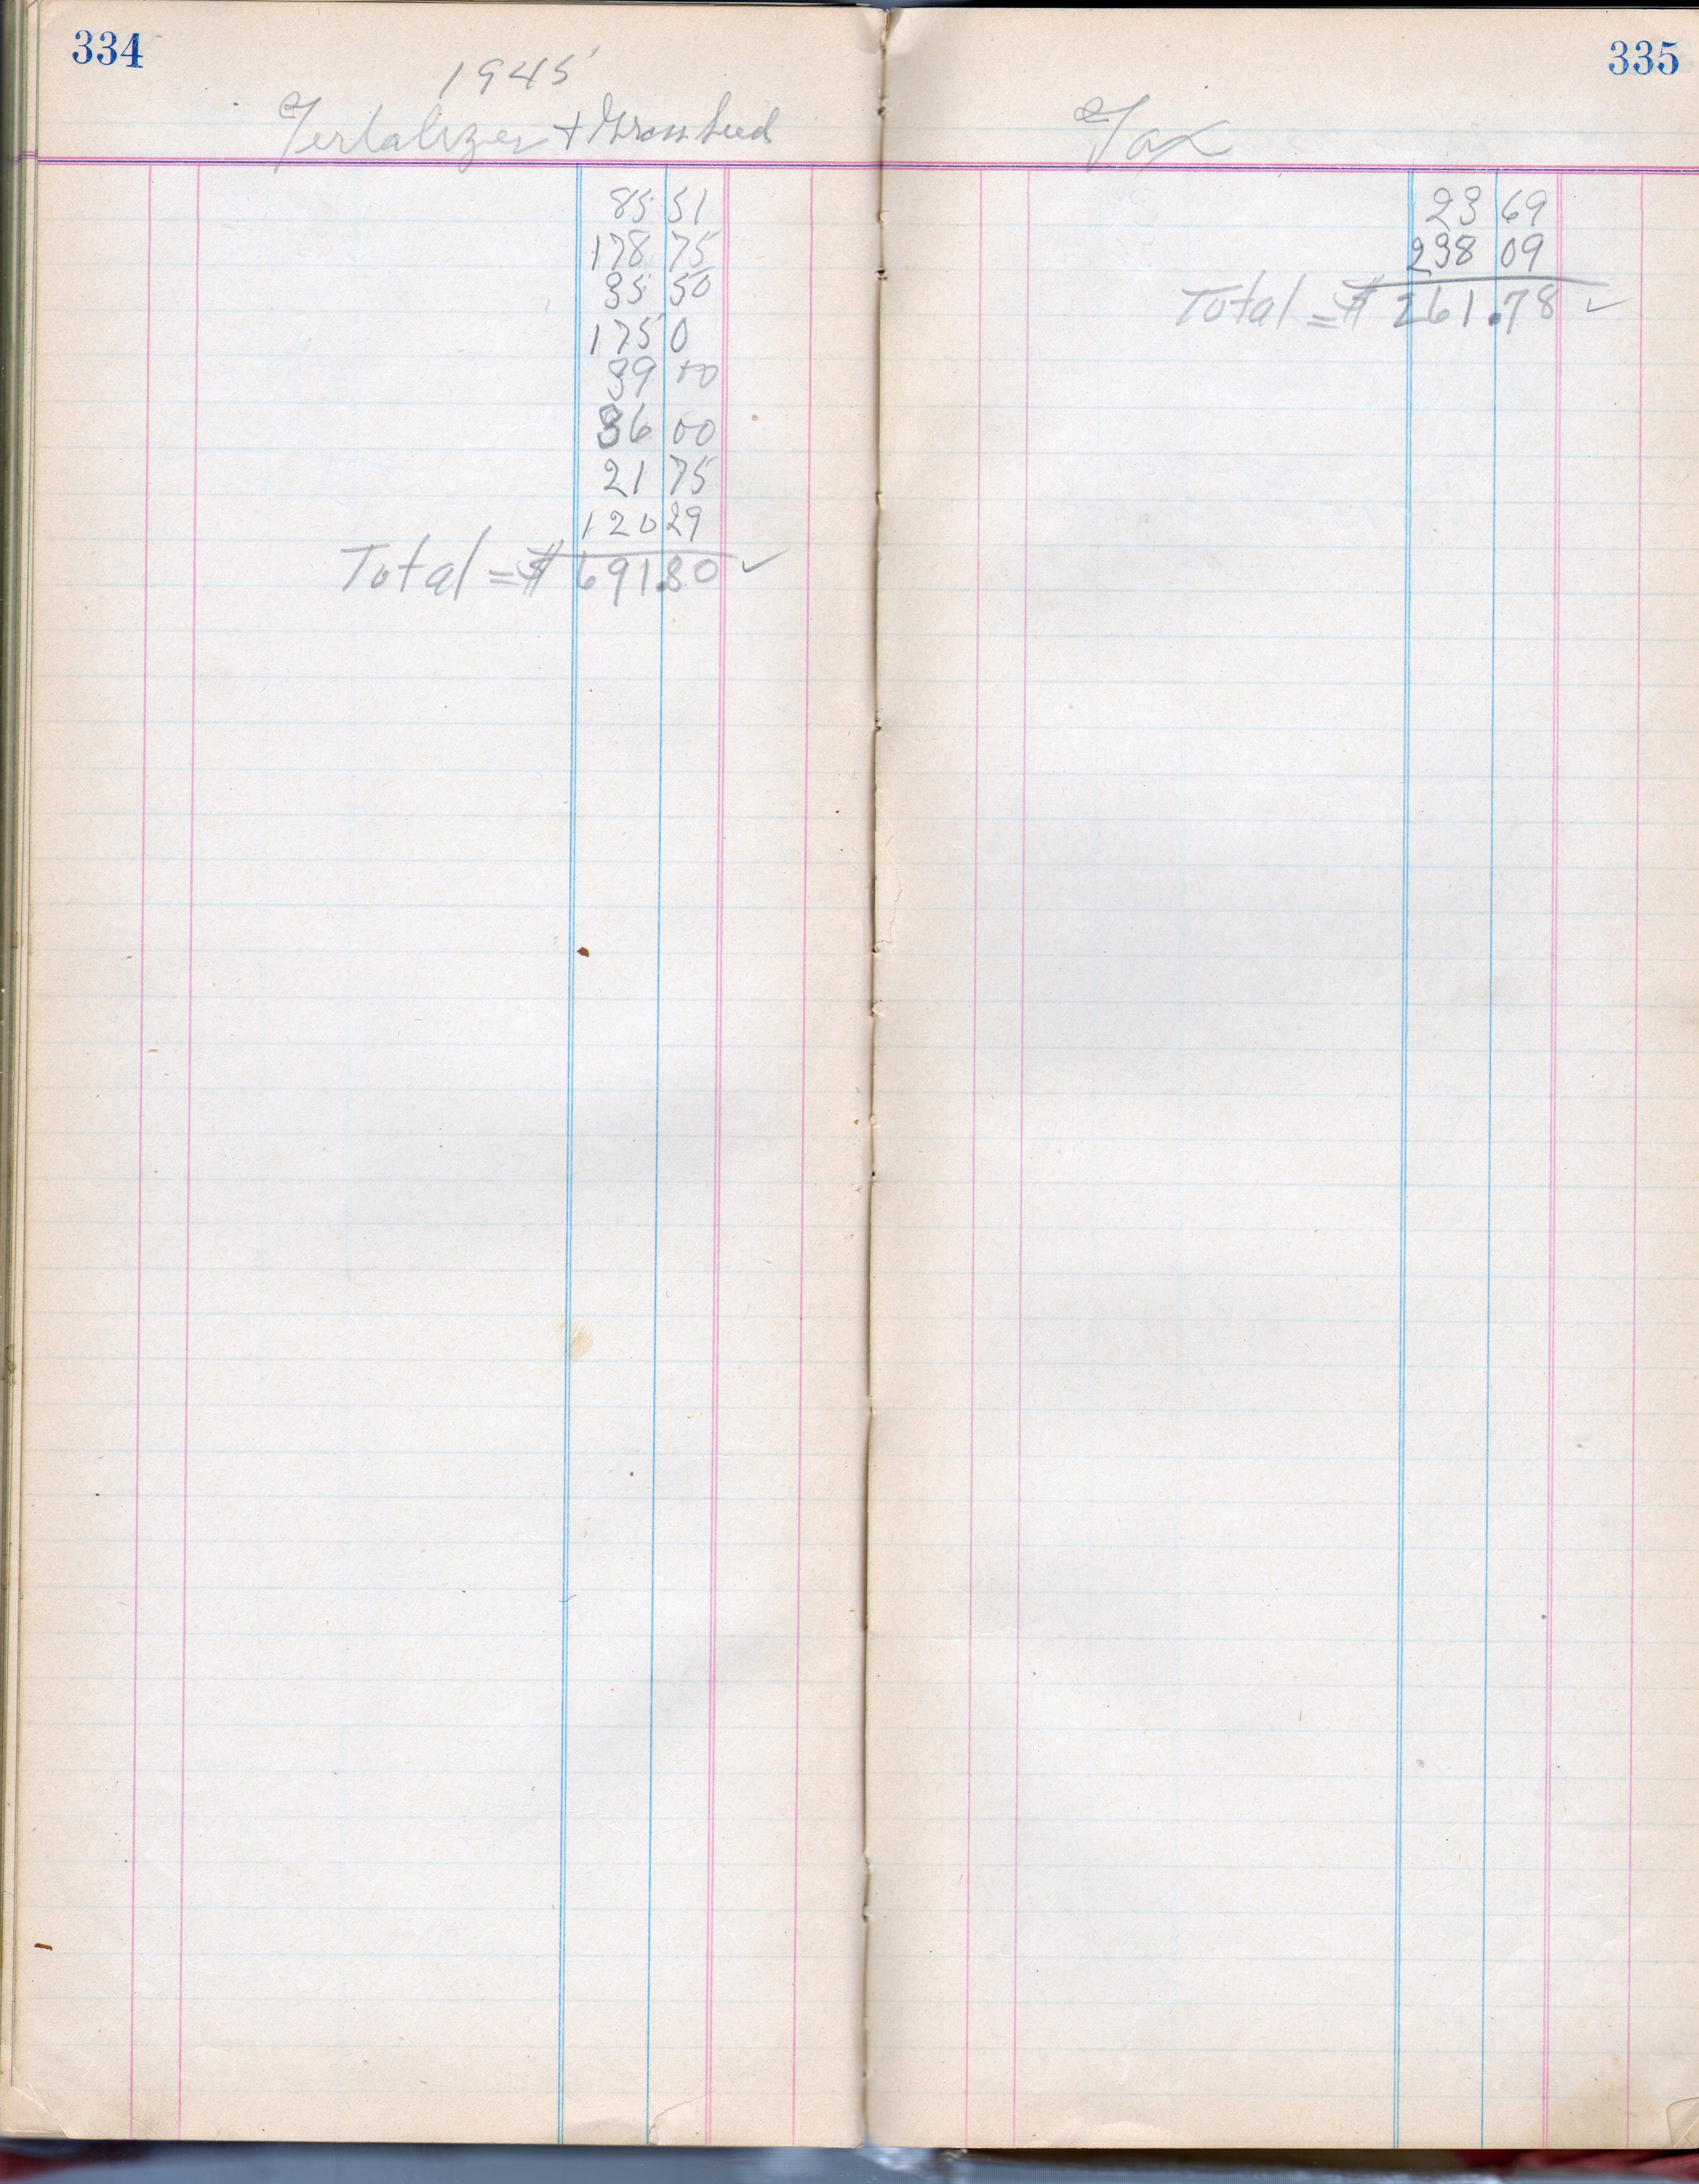 334
1945
Fertalizer + Grass Seed
85 51
178 75
35 50
175 0
39 00
36 00
21 75
120 29
Total = $ 691.80 ✓
335
Tax
23 69
238 09
Total = $ 261.78 ✓